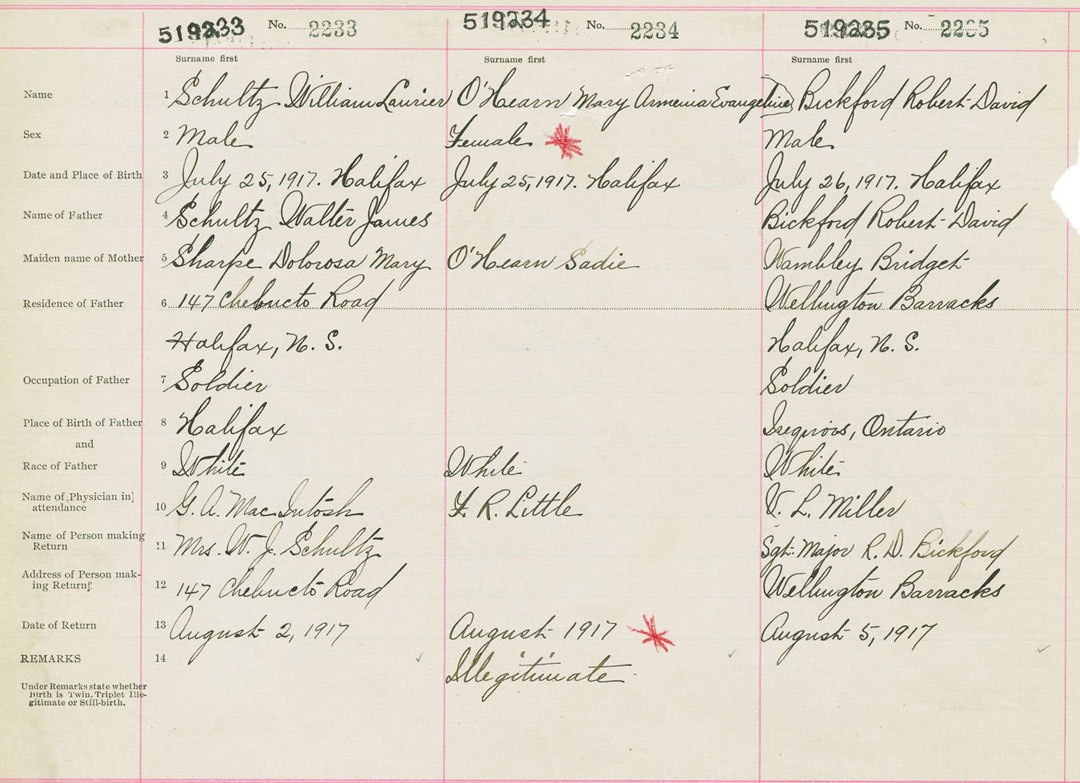 519233 No. 2233 519234 No. 2234 519235 No. 2235
Surname first Surname first Surname first
Name 1 Schultz William Laurier O'Hearn Mary Armenia Evangeline Bickford Robert David
Sex 2 Male Female Male
Date and Place of Birth 3 July 25, 1917. Halifax July 25, 1917. Halifax July 26, 1917. Halifax
Name of Father 4 Schultz Walter James Bickford Robert David
Maiden name of Mother 5 Sharpe Dolorosa Mary O'Hearn Sadie Wambley Bridget
Residence of Father 6 147 Chebucto Road Wellington Barracks
Halifax, N. S. Halifax, N. S.
Occupation of Father 7 Soldier Soldier
Place of Birth of Father 8 Halifax Ontario
and
Race of Father 9 White White White
Name of Physician in
attendance 10 G. A. MacIntosh F. R. Little V. L. Miller
Name of Person making
Return 11 Mrs. W. J. Schultz Sgt. Major R. D. Bickford
Address of Person mak-
ing Return 12 147 Chebucto Road Wellington Barracks
Date of Return 13 August 2, 1917 August 1917 August 5, 1917
REMARKS 14 Illegitimate
Under Remarks state whether
Birth is Twin, Triplet Ille-
gitimate or Still-birth.